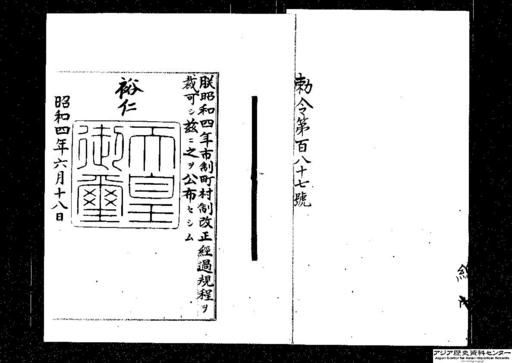 勅令第百八十七號
朕昭和四年市制町村制改正經過規程ヲ
裁可シ茲ニ之ヲ公布セシム
裕仁
天皇
御璽
昭和四年六月十八日
アジア歴史資料センター
Japan Center for Asian Historical Records